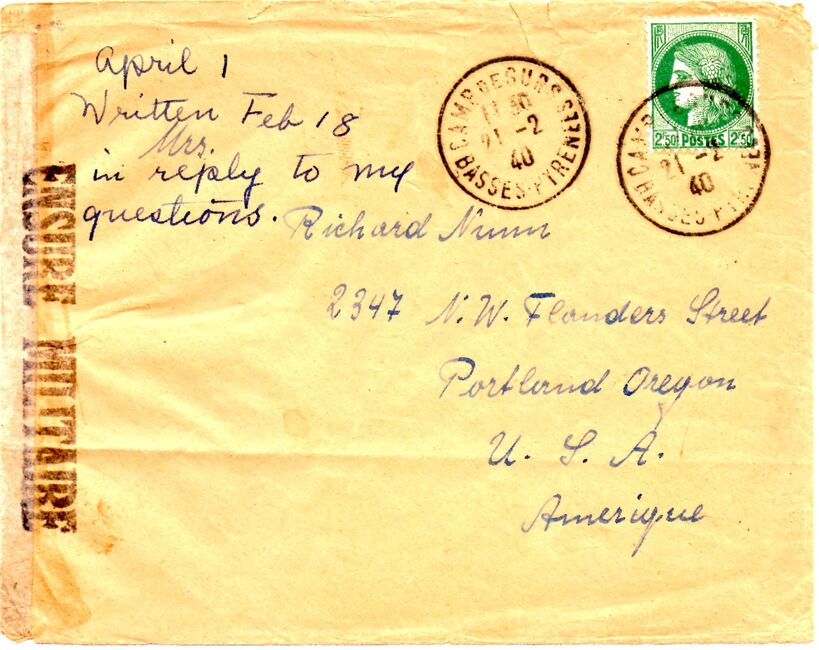 April 1
Written Feb 18
Mrs.
in reply to my
questions.
Richard Nunn
2347 N.W. Flanders Street
Portland Oregon
U. S. A.
Amerique
CAMP DE GURS
21 -2
40
BASSES-PYRENEES
2F50 POSTES 2F50
CAMP
21 -2
40
BASSES PYRENEES
CENSURE MILITAIRE